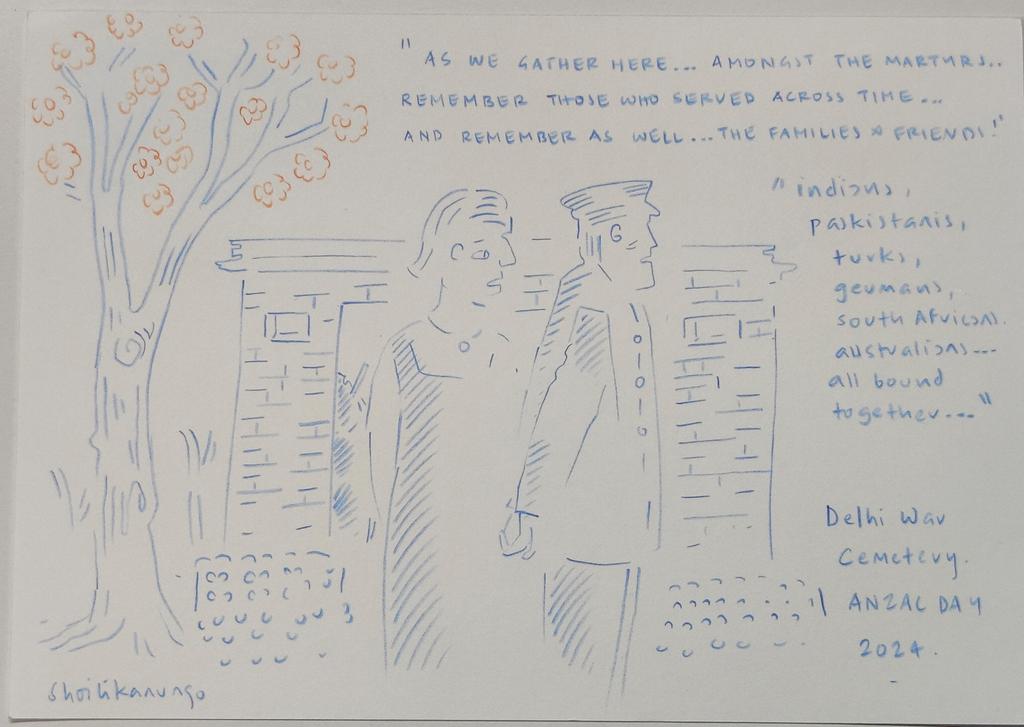 "AS WE GATHER HERE... AMONGST THE MARTYRS..
REMEMBER THOSE WHO SERVED ACROSS TIME...
AND REMEMBER AS WELL...THE FAMILIES & FRIENDS!"
"indians,
paskistanis,
turks,
germans,
south African.
australians---
all bound
together...."
Delhi War
Cemetery.
ANZAC DAY
2024.
Shoilikanungo